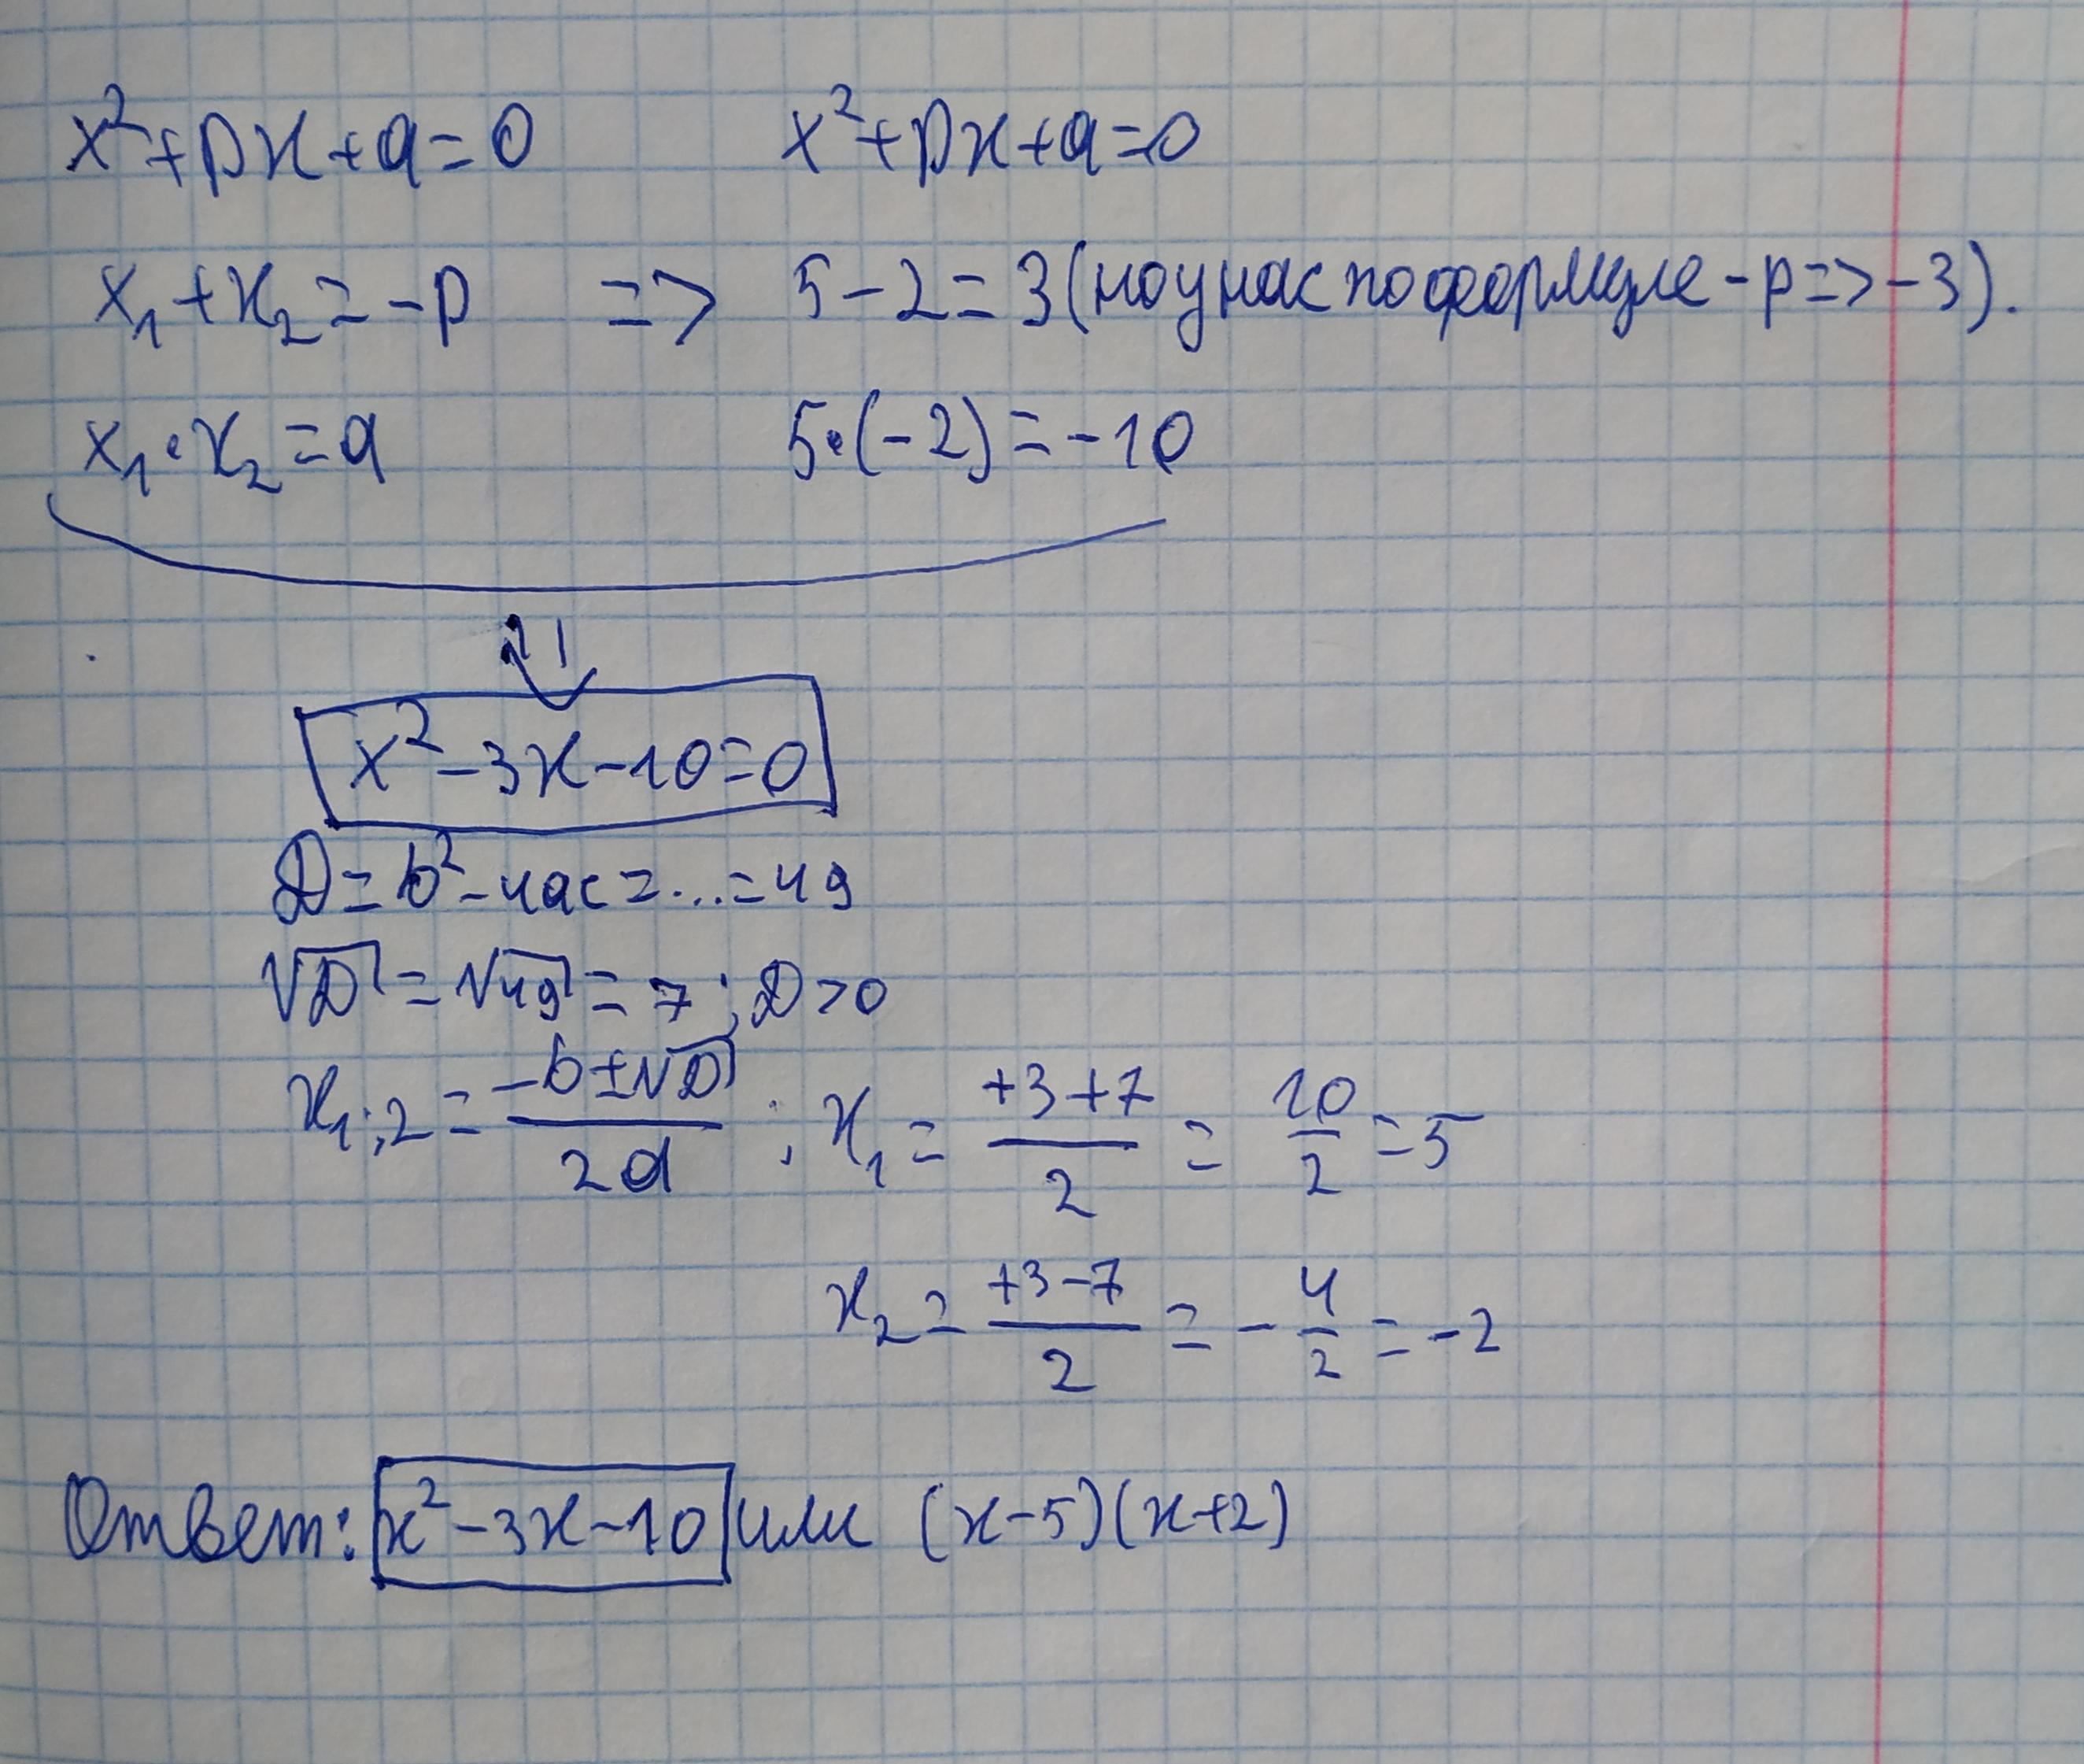 x²+px+q=0 x²+px+q=0
x₁+x₂=-p => 5-2=3(но у нас по формуле -p=>-3).
x₁·x₂=q 5·(-2)=-10
x²-3x-10=0
D=b²-4ac=...=49
√D=√49=7; D>0
x₁;₂=(-b±√D)/2a; x₁=(+3+7)/2=10/2=5
x₂=(+3-7)/2=-4/2=-2
Ответ: x²-3x-10 или (x-5)(x+2)